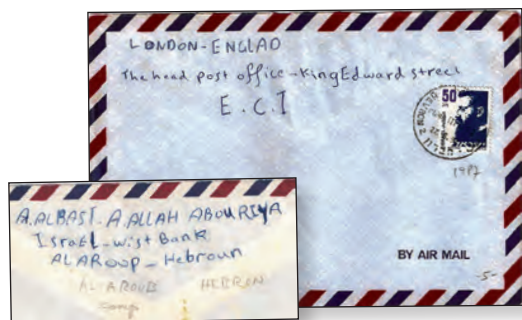 LONDON-ENGLAD
The head post office-King Edward street
E.C.I
50
1987
BY AIR MAIL
-5-
A.ALBAST-A.ALLAH ABOURIYA
Israel-wist Bank
ALAROUP-Hebroun
ALAROUB HEBRON
camp